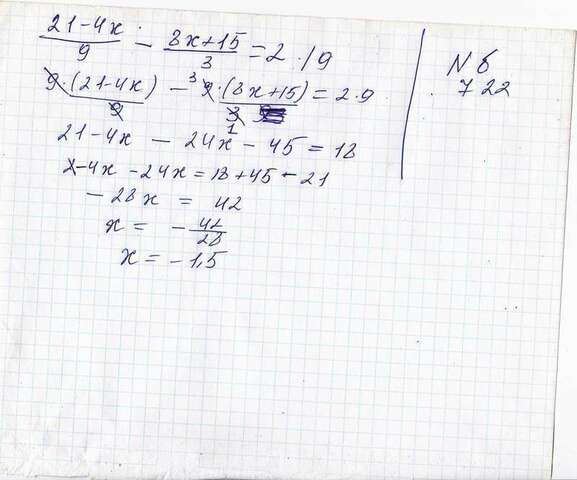 21-4x/9 - 8x+15/3 = 2 ·/9
9·(21-4x)/9 - ³9·(8x+15)/3 1 = 2·9
21-4x - 24x - 45 = 18
-4x - 24x = 18 + 45 - 21
- 28x = 42
x = - 42/28
x = - 1,5
N 6
722